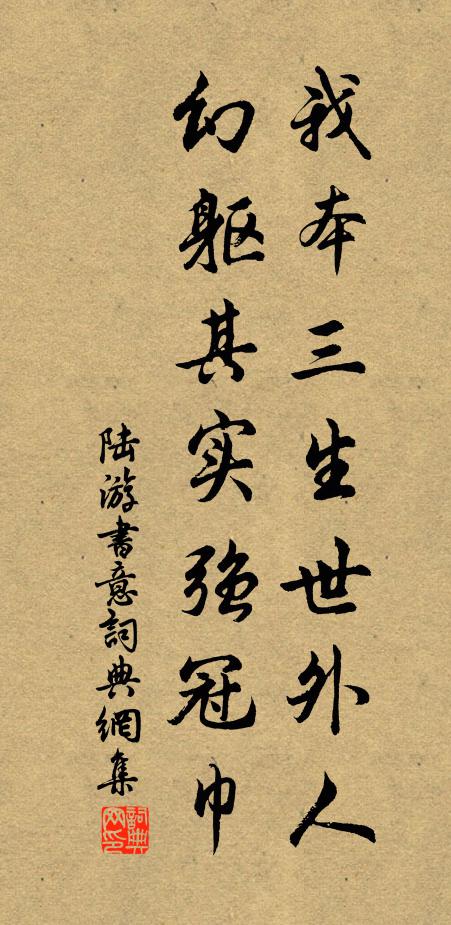 我本三生世外人
幻躯其实强冠巾
陆游書意詞典網集
詞典網印